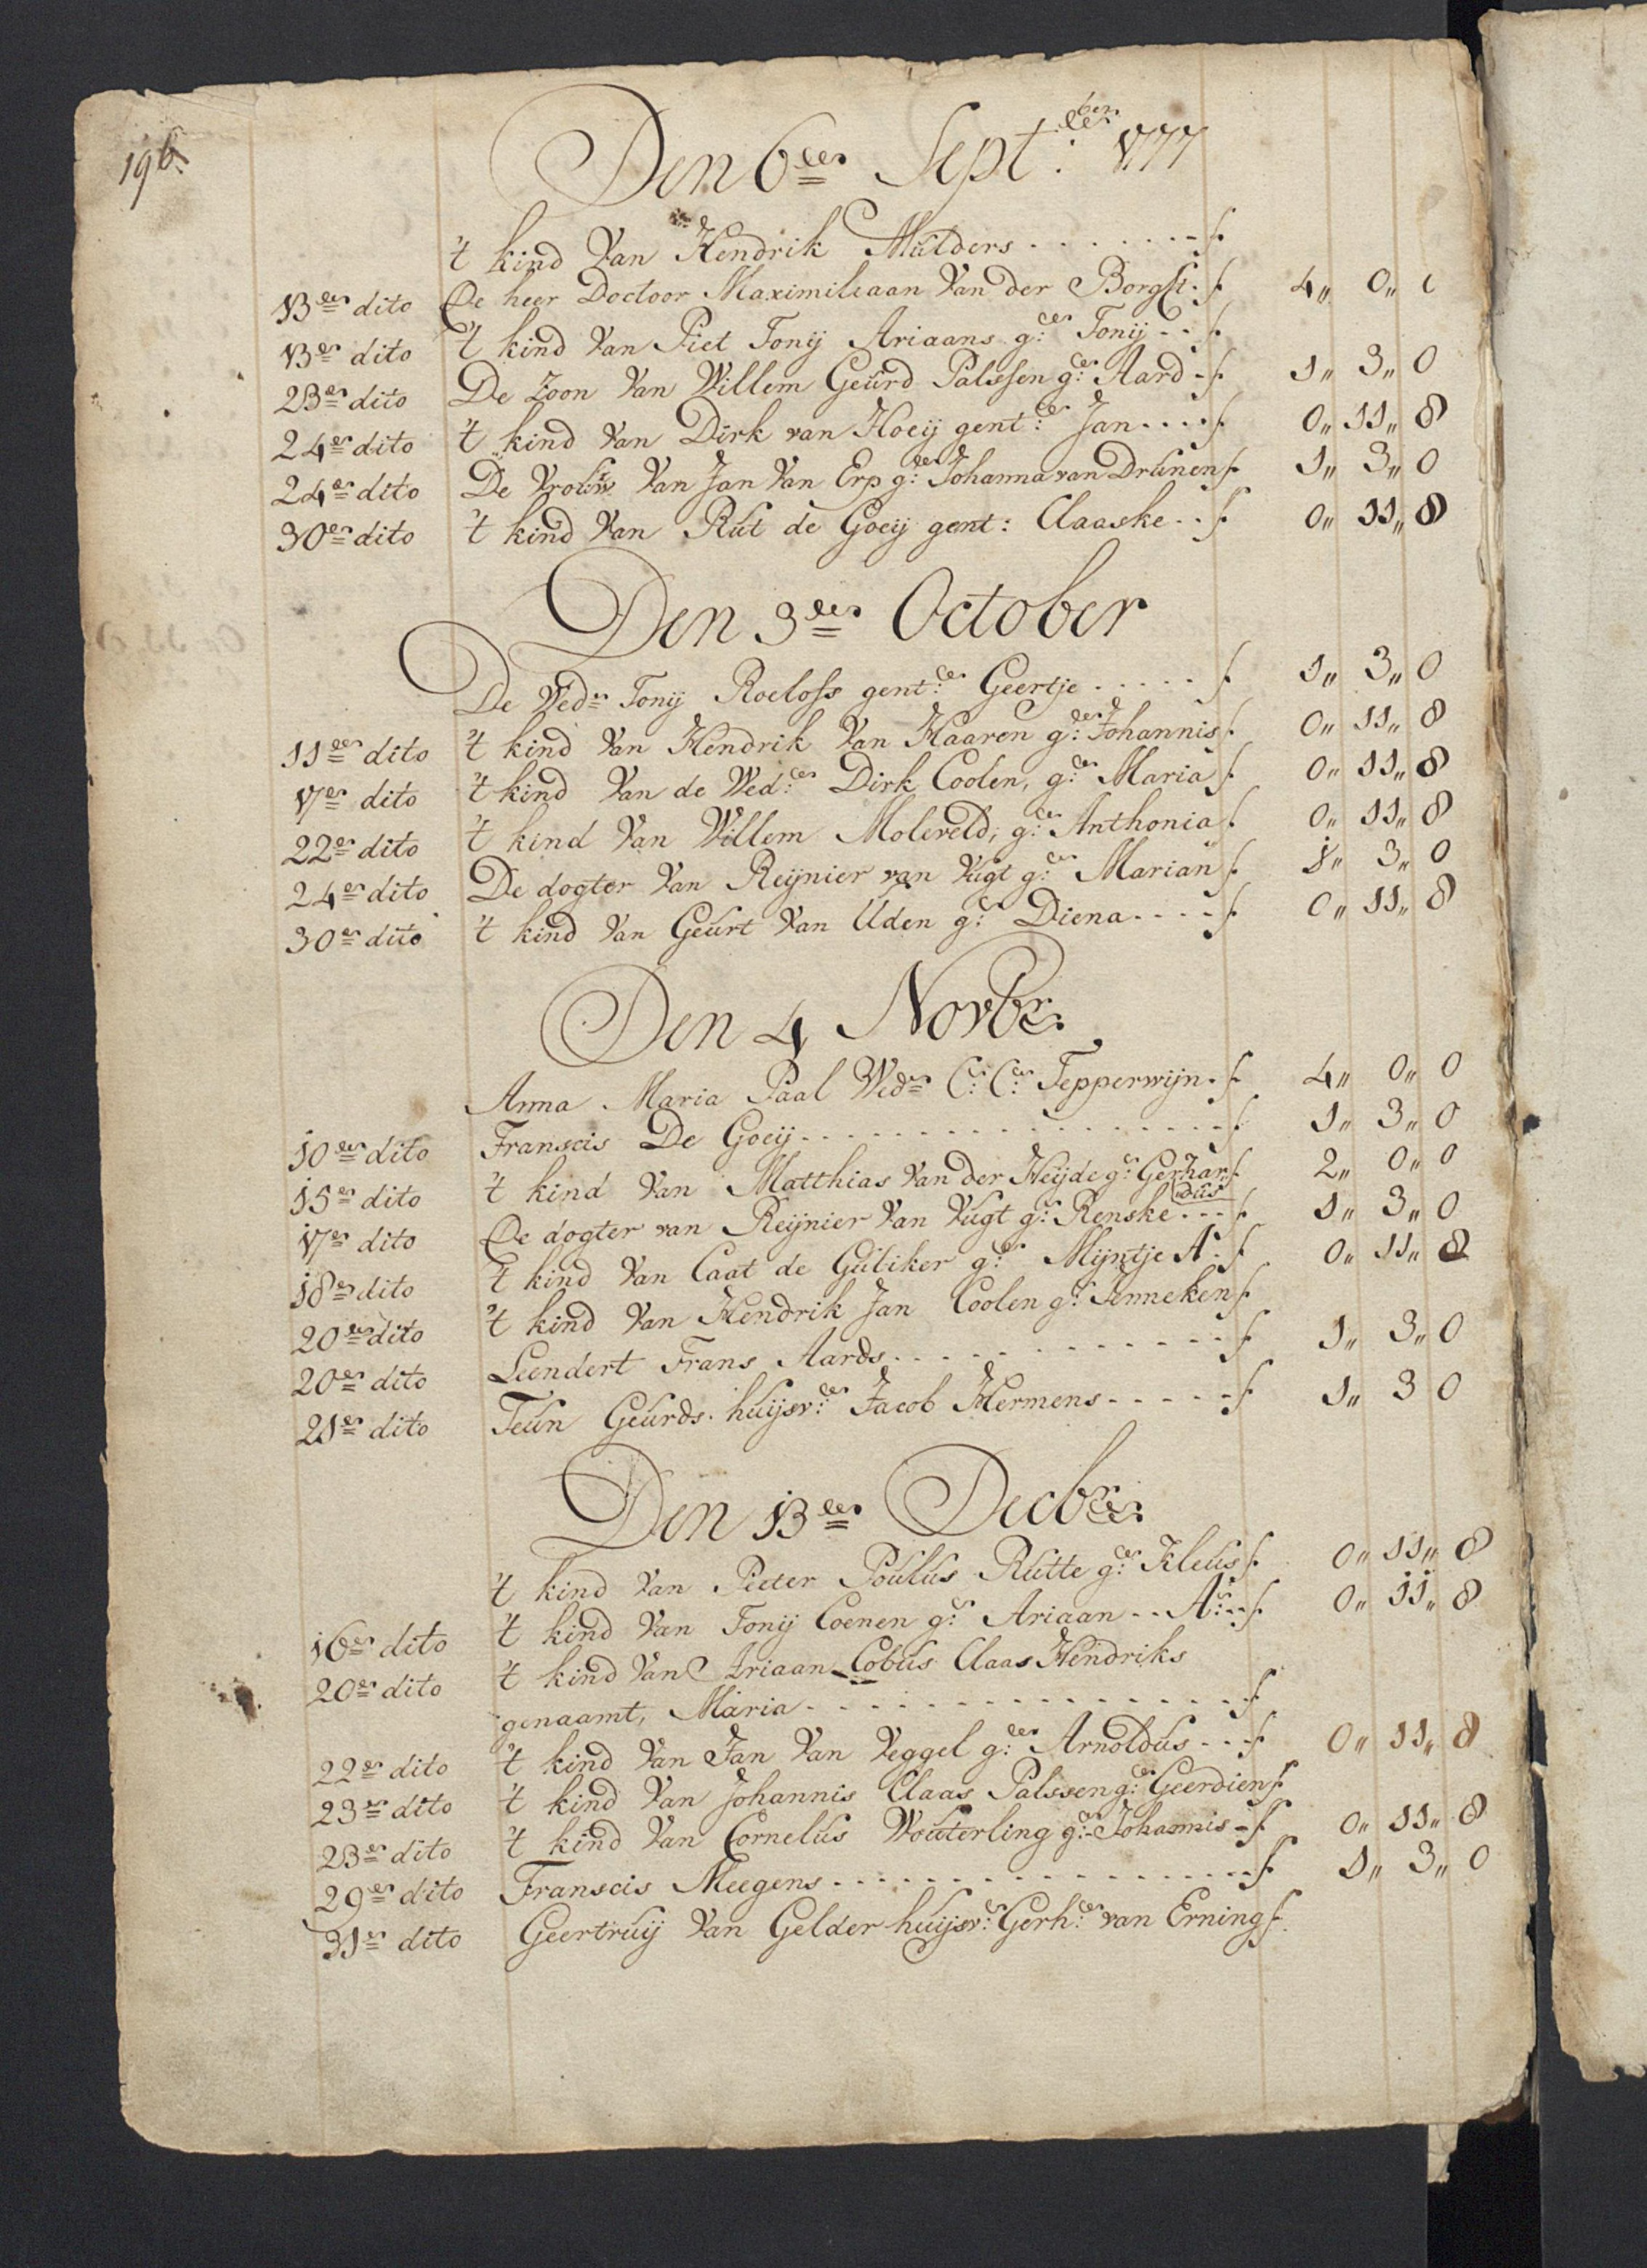 196.
Den 6den Septber: 1777
't kind Van Hendrik Mulders . . . . . . . - f.
13den dito De heer Doctoor Maximiliaan Van der Borght. f. 4„ 0„ 0
13en dito 't kind Van Piet Tonij Ariaans gen: Tonij - - f.
23en dito De Zoon Van Willem Geurd Palssen gen: Aard - f. 1„ 3„ 0
24en dito 't kind Van Dirk van Hoeij genten: Jan . . . . f. 0„ 11„ 8
24en dito De Vrouw Van Jan Van Erp gen: Johanna van Drunen f. 1„ 3„ 0
30en dito 't kind Van Rut de Goeij gent: Claaske . . f 0„ 11„ 8
Den 3den October
De Wedn Tonij Roelofs genten: Geertje . . . . . f. 1„ 3„ 0
11den dito 't kind Van Hendrik Van Haaren gen: Johannis f. 0„ 11„ 8
17en dito 't kind Van de Weden: Dirk Coolen, gen: Maria f. 0„ 11„ 8
22en dito 't kind Van Willem Moleveld; gen: Anthonia f. 0„ 11„ 8
24en dito De dogter Van Reijnier van Vugt gen: Marian f. 1„ 3„ 0
30en dito 't kind Van Geurt Van Uden gen: Diena . . . . f. 0„ 11„ 8
Den 4 Novbr:
Anna Maria Paal Wedn C: C: Tepperwijn. f. 4„ 0„ 0
10den dito Franscis De Goeij . . . . . . . . . . . . . . f. 1„ 3„ 0
15en dito 't kind Van Matthias Van der Heijde gen: Gerhar f. 2„ 0„ 0
dus
17en dito De dogter van Reijnier Van Vugt gen: Renske . . . f. 1„ 3„ 0
18en dito 't kind Van Caat de Gutiker gen: Mijntje A. f. 0„ 11„ 8
20den dito 't kind Van Hendrik Jan Coolen gen: Jenneken f.
20en dito Leendert Frans Aards . . . . . . . . . . . . f. 1„ 3„ 0
21en dito Teun Geurds. huijsven: Jacob Hermens - - - - - f. 1„ 3 0
Den 13den Decbr:
't kind Van Peeter Poulus Rutte gen: Kleus f. 0„ 11„ 8
16en dito 't kind Van Tonij Coenen gen: Ariaan - - A: - - f. 0„ 11„ 8
20en dito 't kind Van Ariaan Cobus Claas Hendriks
genaamt, Maria . . . . . . . . . . . . . . . . f.
22en dito 't kind Van Jan Van Veggel gen: Arnoldus - - f. 0„ 11„ 8
23en dito 't kind Van Johannis Claas Palssen gen: Geerdien f.
23en dito 't kind Van Cornelus Wouterling gen: Johannis - f. 0„ 11„ 8
29en dito Franscis Meegens . . . . . . . . . . . . . . . f. 1„ 3„ 0
31en dito Geertruij Van Gelder huijsven: Gerhen: van Erning f.